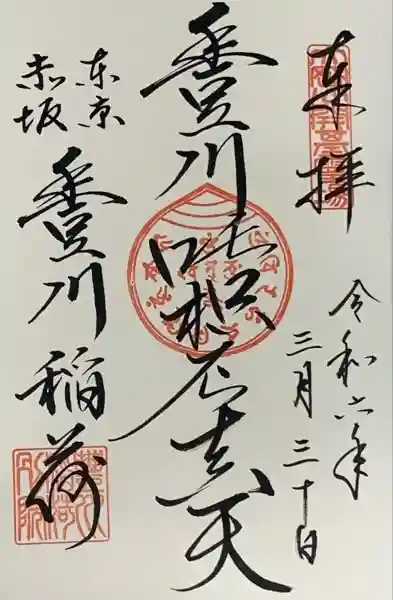 奉拝
令和六年
三月三十日
豊川吒枳尼真天
東京
赤坂
豊川稲荷